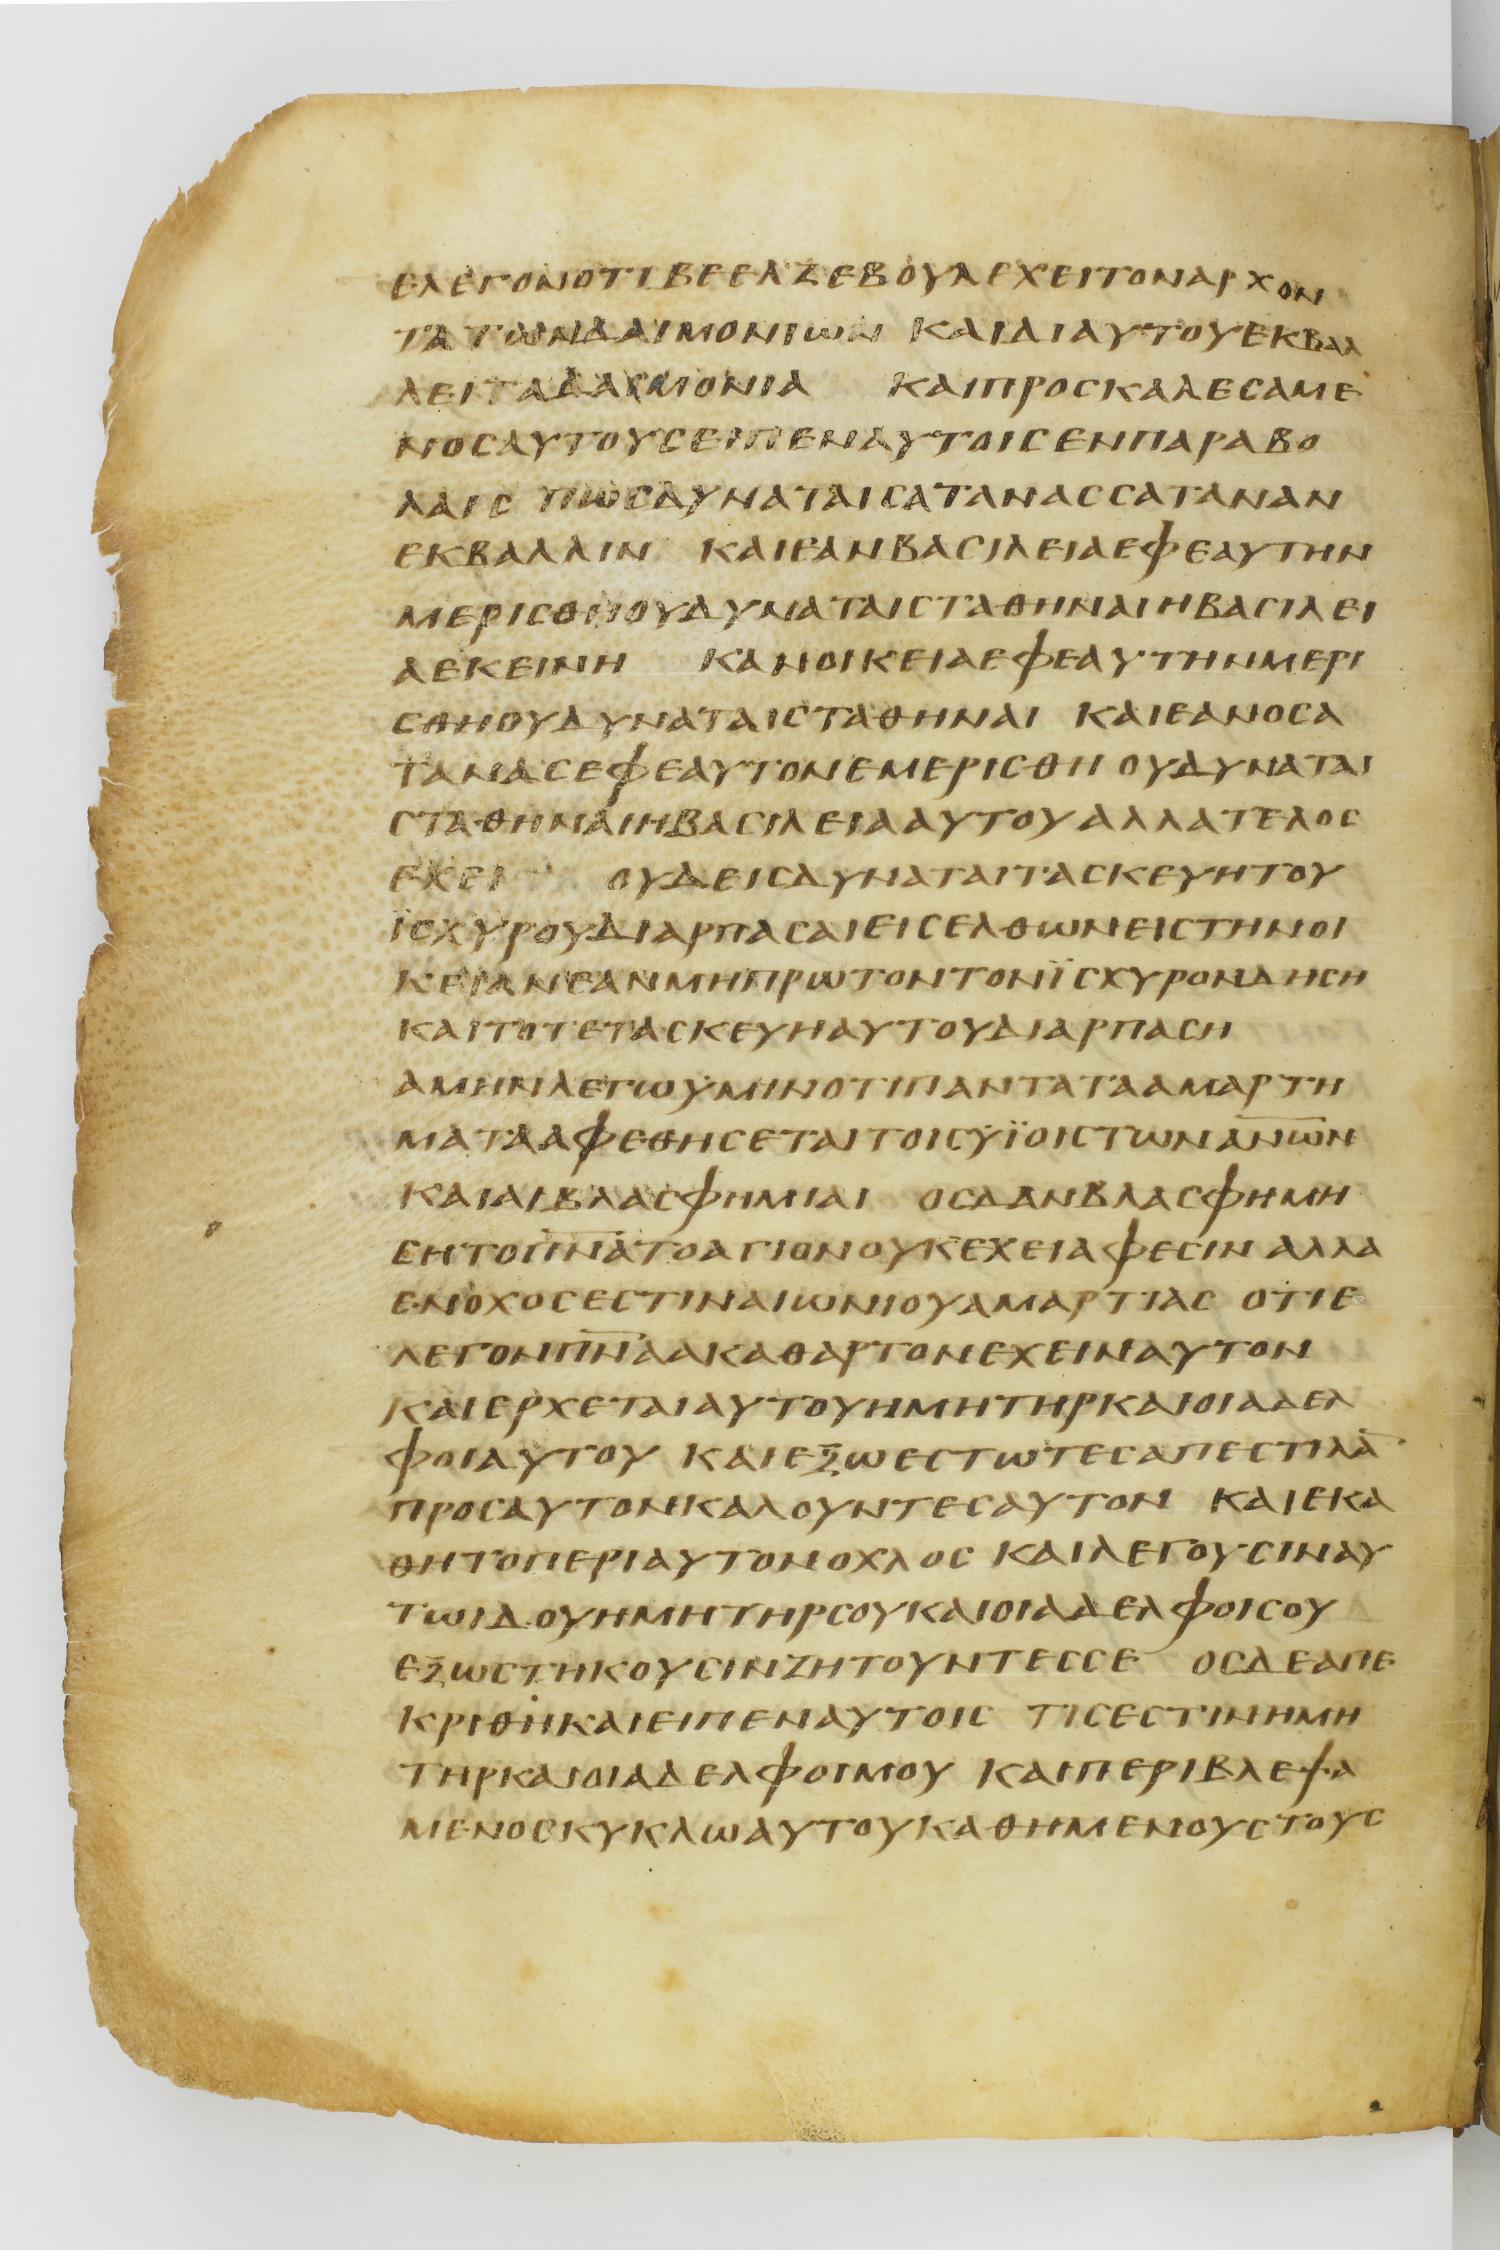 ΕΛΕΓΟΝΟΤΙΒΕΕΛΖΕΒΟΥΛΕΧΕΙΤΟΝΑΡΧΟΝ
ΤΑΤΩΝΔΑΙΜΟΝΙΩΝ ΚΑΙΔΙΑΥΤΟΥΕΚΒΑΛ
ΛΕΙΤΑΔΑΙΜΟΝΙΑ ΚΑΙΠΡΟΣΚΑΛΕСΑΜΕ
ΝΟСΑΥΤΟΥСΕΙΠΕΝΑΥΤΟΙСΕΝΠΑΡΑΒΟ
ΛΑΙС ΠΩСΔΥΝΑΤΑΙСΑΤΑΝΑССΑΤΑΝΑΝ
ΕΚΒΑΛΛΙΝ ΚΑΙΕΑΝΒΑСΙΛΕΙΑΕΦΕΑΥΤΗΝ
ΜΕΡΙСΘΗΟΥΔΥΝΑΤΑΙСΤΑΘΗΝΑΙΗΒΑСΙΛΕΙ
ΑΕΚΕΙΝΗ ΚΑΝΟΙΚΕΙΑΕΦΕΑΥΤΗΝΜΕΡΙ
СΘΗΟΥΔΥΝΑΤΑΙСΤΑΘΗΝΑΙ ΚΑΙΕΑΝΟСΑ
ΤΑΝΑСΕΦΕΑΥΤΟΝΕΜΕΡΙСΘΗ ΟΥΔΥΝΑΤΑΙ
СΤΑΘΗΝΑΙΗΒΑСΙΛΕΙΑΑΥΤΟΥΑΛΛΑΤΕΛΟС
ΕΧΕΙ ΟΥΔΕΙСΔΥΝΑΤΑΙΤΑСΚΕΥΗΤΟΥ
ΪСΧΥΡΟΥΔΙΑΡΠΑСΑΙΕΙСΕΛΘΩΝΕΙСΤΗΝΟΙ
ΚΕΙΑΝΕΑΝΜΗΠΡΩΤΟΝΤΟΝΪСΧΥΡΟΝΔΗСΗ
ΚΑΙΤΟΤΕΤΑСΚΕΥΗΑΥΤΟΥΔΙΑΡΠΑСΗ
ΑΜΗΝΛΕΓΩΫΜΙΝΟΤΙΠΑΝΤΑΤΑΑΜΑΡΤΗ
ΜΑΤΑΑΦΕΘΗСΕΤΑΙΤΟΙСΫΪΟΙСΤΩΝΑ̅Ν̅Ω̅Ν̅
ΚΑΙΑΙΒΛΑСΦΗΜΙΑΙ ΟСΔΑΝΒΛΑСΦΗΜΗ
СΗΤΟΠ̅Ν̅Α̅ΤΟΑΓΙΟΝΟΥΚΕΧΕΙΑΦΕСΙΝΑΛΛΑ
ΕΝΟΧΟСΕСΤΙΝΑΙΩΝΙΟΥΑΜΑΡΤΙΑС ΟΤΙΕ
ΛΕΓΟΝΠ̅Ν̅Α̅ΑΚΑΘΑΡΤΟΝΕΧΕΙΝΑΥΤΟΝ
ΚΑΙΕΡΧΕΤΑΙΑΥΤΟΥΗΜΗΤΗΡΚΑΙΟΙΑΔΕΛ
ΦΟΙΑΥΤΟΥ ΚΑΙΕΞΩΕСΤΩΤΕСΑΠΕСΤΙΛΑ̅
ΠΡΟСΑΥΤΟΝΚΑΛΟΥΝΤΕСΑΥΤΟΝ ΚΑΙΕΚΑ
ΘΗΤΟΠΕΡΙΑΥΤΟΝΟΧΛΟС ΚΑΙΛΕΓΟΥСΙΝΑΥ
ΤΩΙΔΟΥΗΜΗΤΗΡСΟΥΚΑΙΟΙΑΔΕΛΦΟΙСΟΥ
ΕΞΩСΤΗΚΟΥСΙΝΖΗΤΟΥΝΤΕССΕ ΟСΔΕΑΠΕ
ΚΡΙΘΗΚΑΙΕΙΠΕΝΑΥΤΟΙС ΤΙСΕСΤΙΝΗΜΗ
ΤΗΡΚΑΙΟΙΑΔΕΛΦΟΙΜΟΥ ΚΑΙΠΕΡΙΒΛΕΨΑ
ΜΕΝΟСΚΥΚΛΩΑΥΤΟΥΚΑΘΗΜΕΝΟΥСΤΟΥС